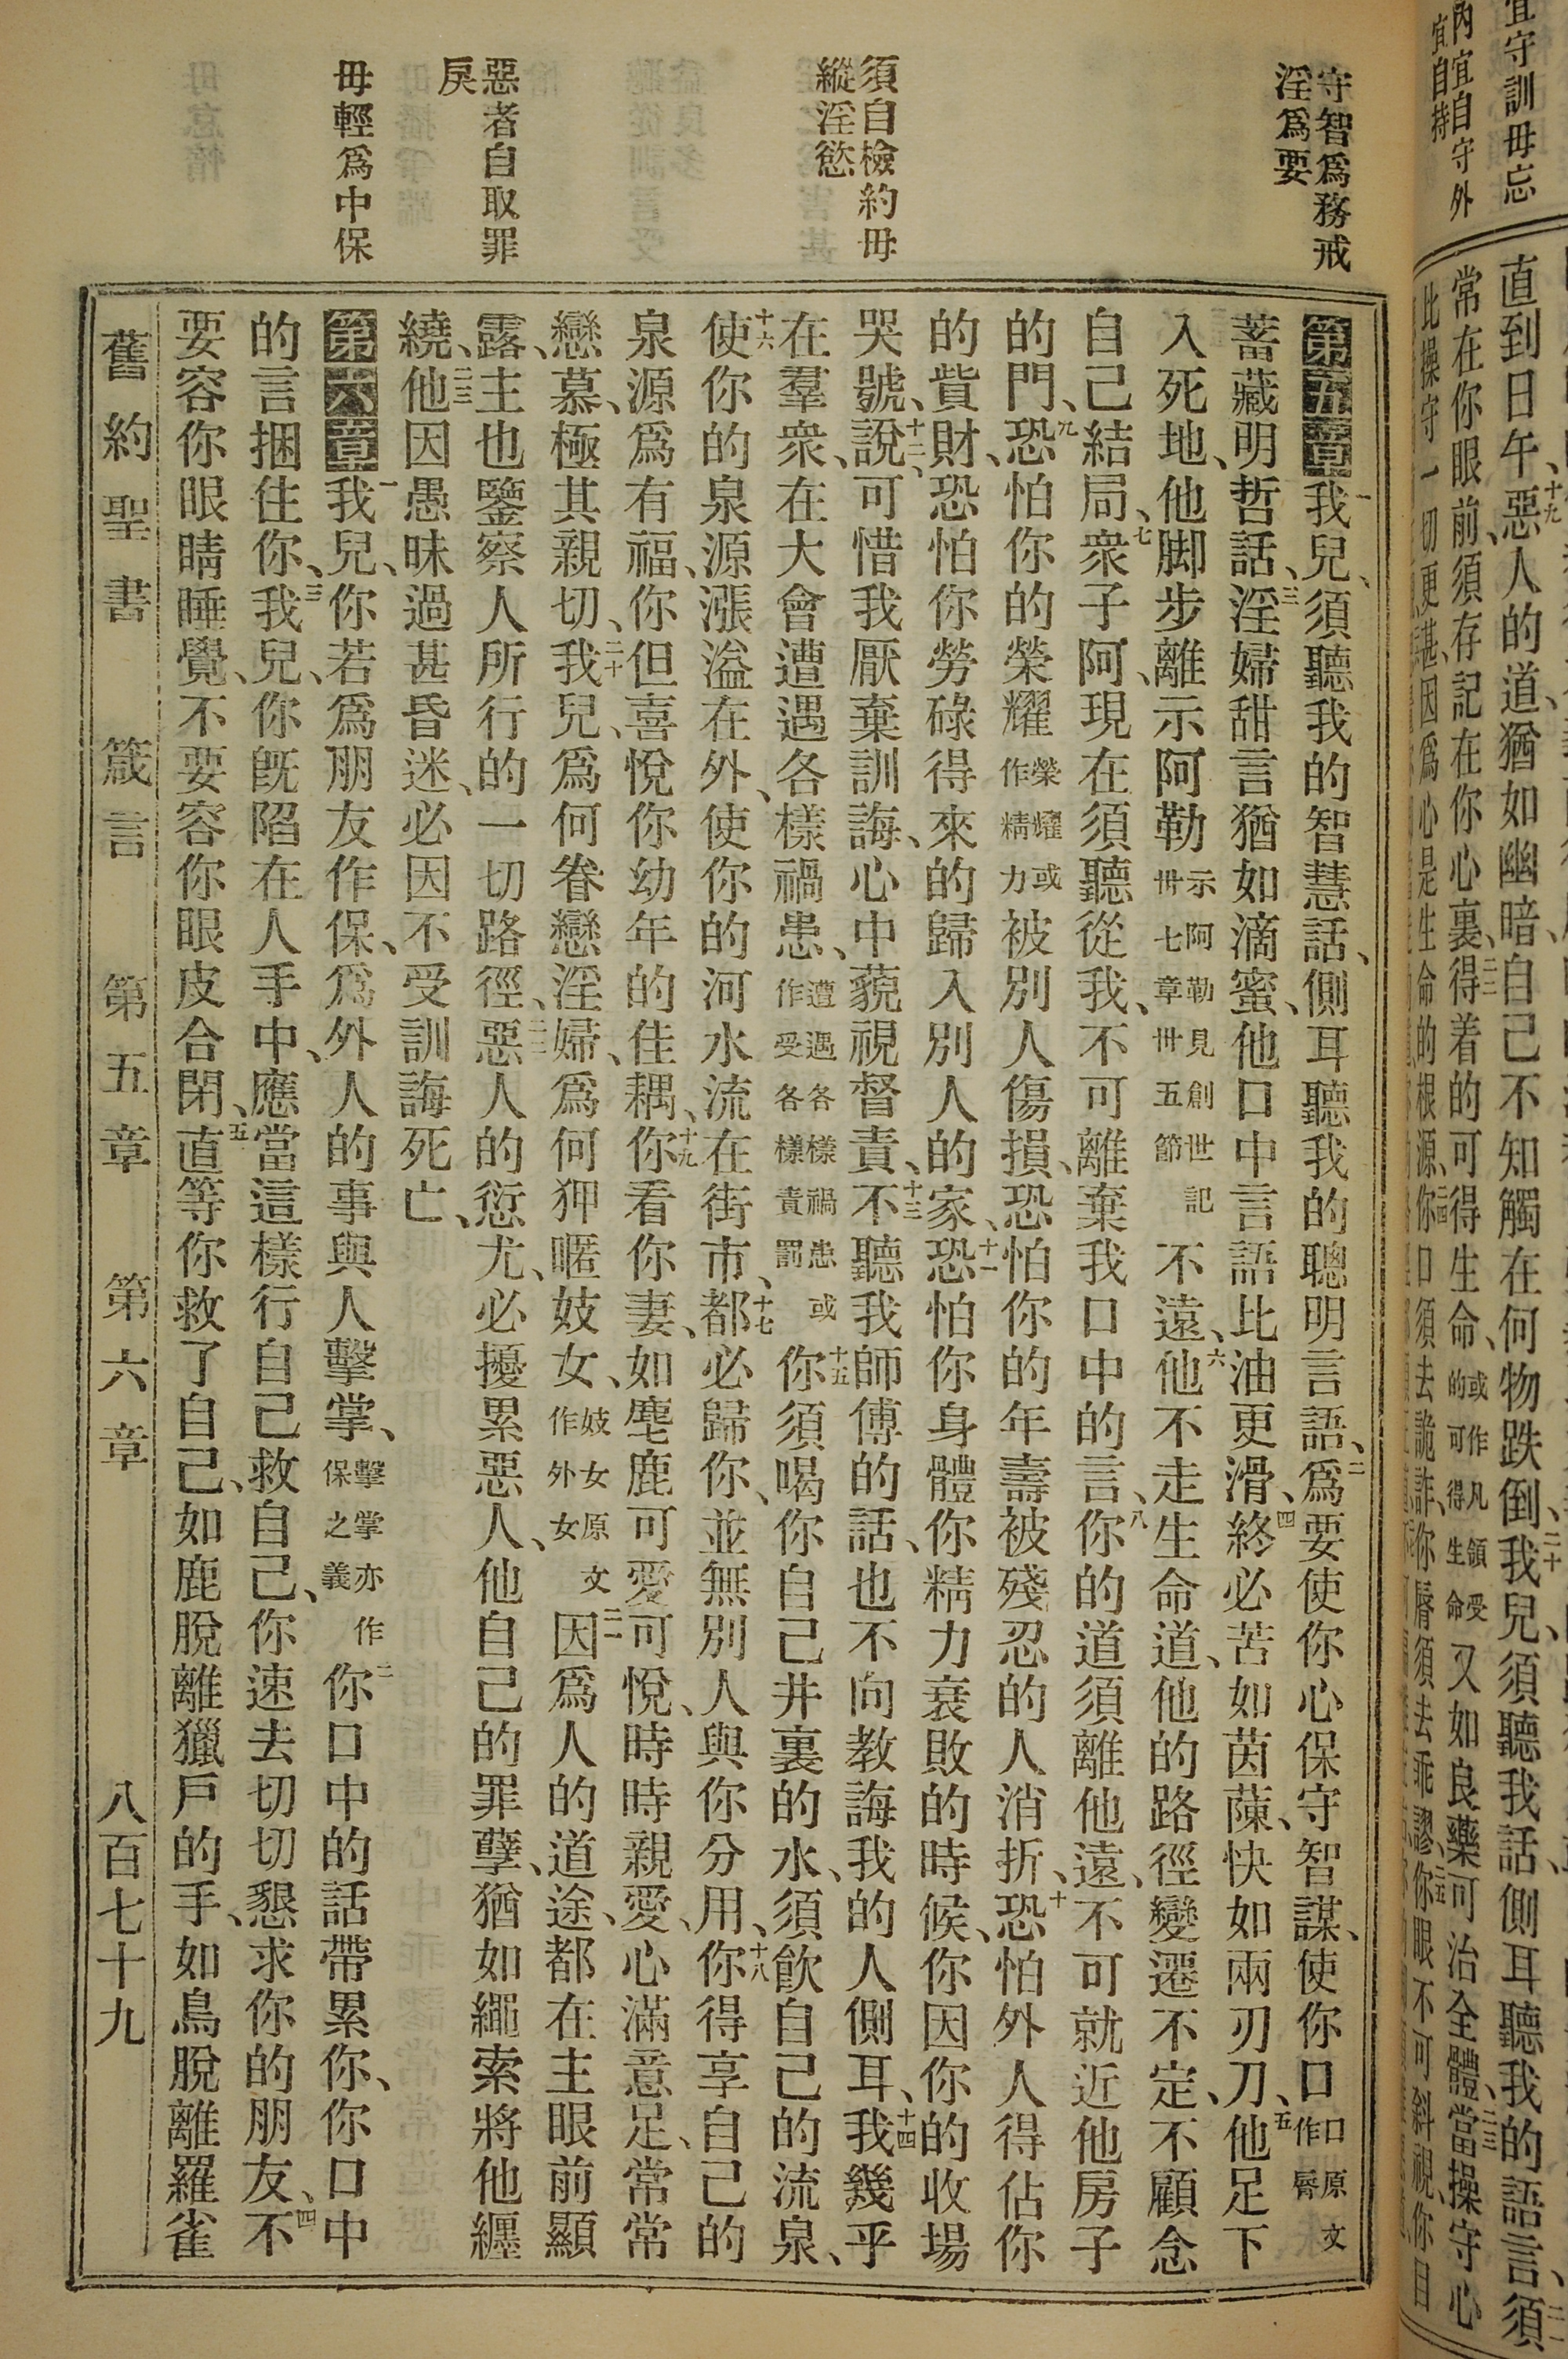 守智爲務戒
淫爲要
須自檢約毋
縱淫慾
惡者自取罪
戾
毋輕爲中保
第五章一我兒、須聽我的智慧話、側耳聽我的聰明言語、二爲要使你心保守智謀、使你口口原文作脣
蓄藏明哲話、三淫婦甜言猶如滴蜜、他口中言語比油更滑、四終必苦如茵蔯、快如兩刃刀、五他足下
入死地、他脚步離示阿勒示阿勒見創世記卅七章卅五節不遠、六他不走生命道、他的路徑變遷不定、不顧念
自己結局、七衆子阿、現在須聽從我、不可離棄我口中的言、八你的道須離他遠、不可就近他房子
的門、九恐怕你的榮耀榮耀或作精力被別人傷損、恐怕你的年壽被殘忍的人消折、十恐怕外人得佔你
的貲財、恐怕你勞碌得來的歸入別人的家、十一恐怕你身體你精力衰敗的時候、你因你的收場
哭號、十二說、可惜我厭棄訓誨、心中藐視督責、十三不聽我師傅的話、也不向教誨我的人側耳、十四我幾乎
在羣衆、在大會遭遇各樣禍患、遭遇各樣禍患或作受各樣責罰十五你須喝你自己井裏的水、須飲自己的流泉、
十六使你的泉源漲溢在外、使你的河水流在街市、十七都必歸你、並無別人與你分用、十八你得享自己的
泉源爲有福、你但喜悅你幼年的佳耦、十九你看你妻、如麀鹿可愛可悅、時時親愛、心滿意足、常常
戀慕、極其親切、二十我兒、爲何眷戀淫婦、爲何狎暱妓女、妓女原文作外女二一因爲人的道途、都在主眼前顯
露、主也鑒察人所行的一切路徑、二二惡人的愆尤、必擾累惡人、他自己的罪孽、猶如繩索將他纏
繞、二三他因愚昧過甚昏迷、必因不受訓誨死亡、
第六章一我兒、你若爲朋友作保、爲外人的事與人擊掌、擊掌亦作保之義二你口中的話帶累你、你口中
的言捆住你、三我兒、你旣陷在人手中、應當這樣行自己救自己、你速去切切懇求你的朋友、四不
要容你眼睛睡覺、不要容你眼皮合閉、五直等你救了自己、如鹿脫離獵戶的手、如鳥脫離羅雀
舊約聖書　箴言　第五章　第六章　八百七十九